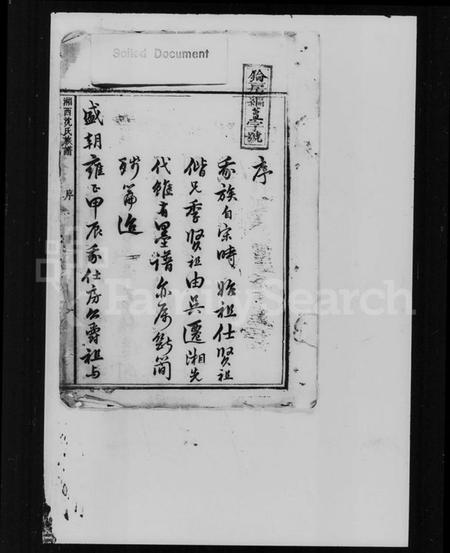 Soiled Document
序
家族自宗時始祖仕賢祖
偕兄季賢祖由吳遷湘先
代雖有墨譜亦屬斷簡
殘篇迨
盛朝雍正甲辰我仕房公爵祖與
湘西沈氏族譜 序
FamilySearch